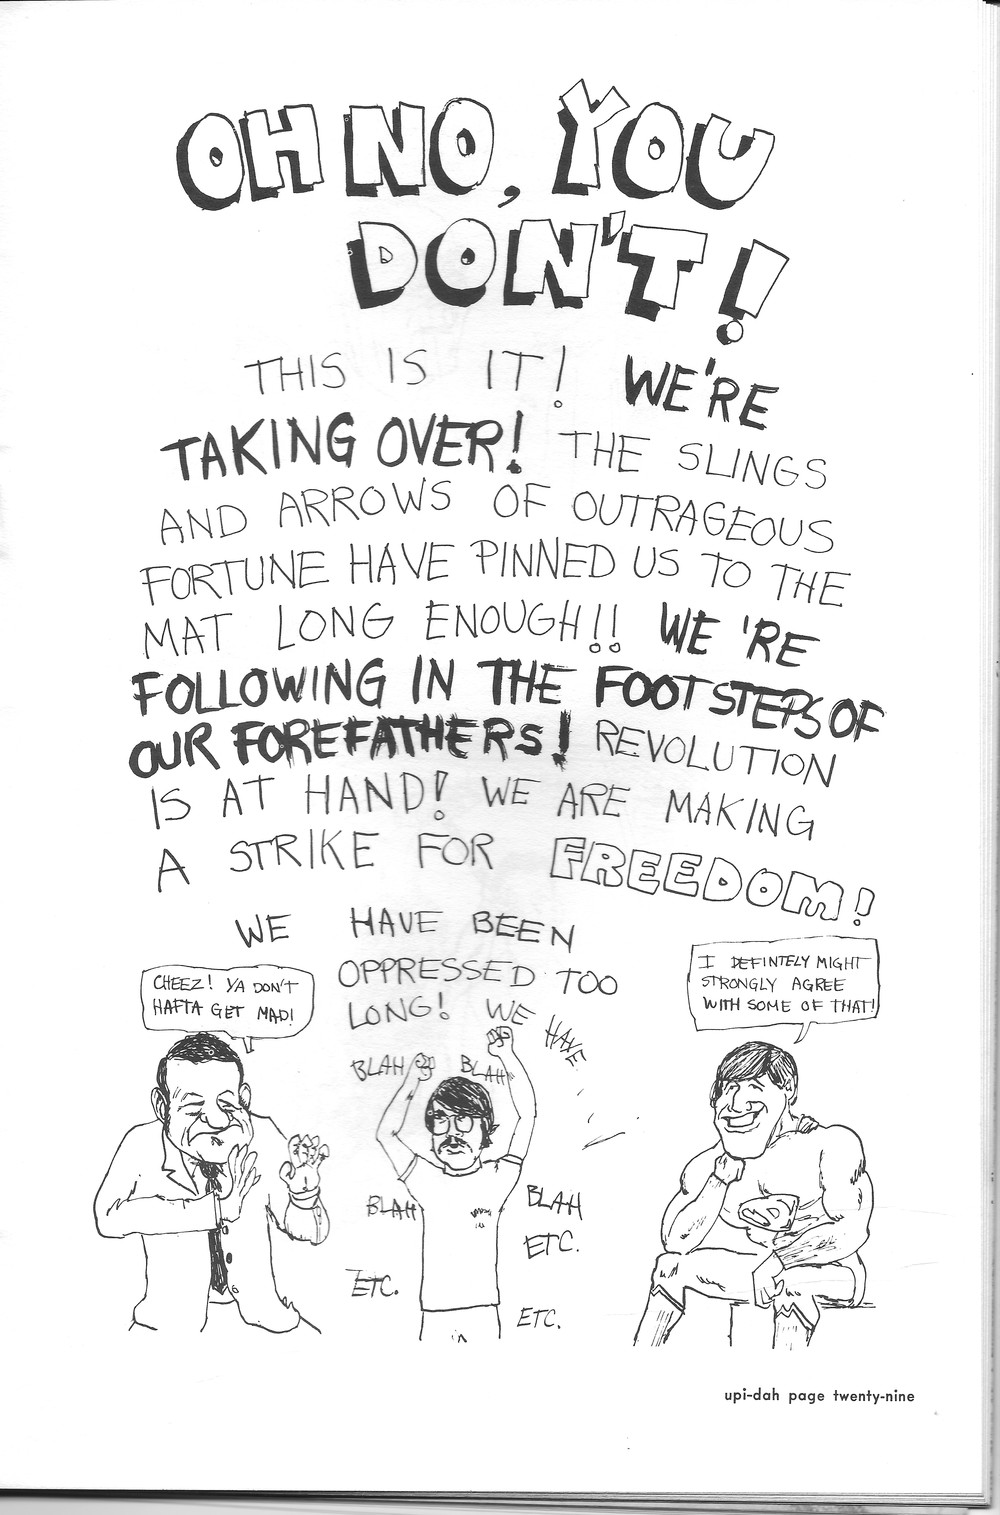 OH NO, YOU
DON'T!
THIS IS IT! WE'RE
TAKING OVER! THE SLINGS
AND ARROWS OF OUTRAGEOUS
FORTUNE HAVE PINNED US TO THE
MAT LONG ENOUGH!! WE'RE
FOLLOWING IN THE FOOTSTEPS OF
OUR FOREFATHERS! REVOLUTION
IS AT HAND! WE ARE MAKING
A STRIKE FOR FREEDOM!
WE HAVE BEEN
OPPRESSED TOO
LONG! WE HAVE
BLAH BLAH
BLAH
BLAH
ETC.
ETC.
ETC.
CHEEZ! YA DON'T
HAFTA GET MAD!
I DEFINTELY MIGHT
STRONGLY AGREE
WITH SOME OF THAT!
upi-dah page twenty-nine